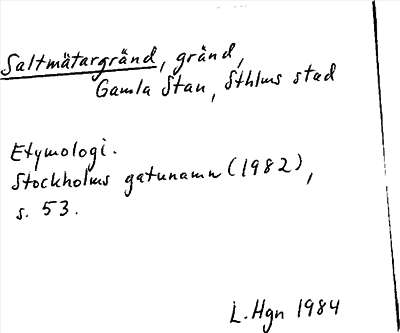 Saltmätargränd, gränd,
Gamla Stan, Sthlms stad
Etymologi.
Stockholms gatunamn (1982),
s. 53.
L. Hgn 1984